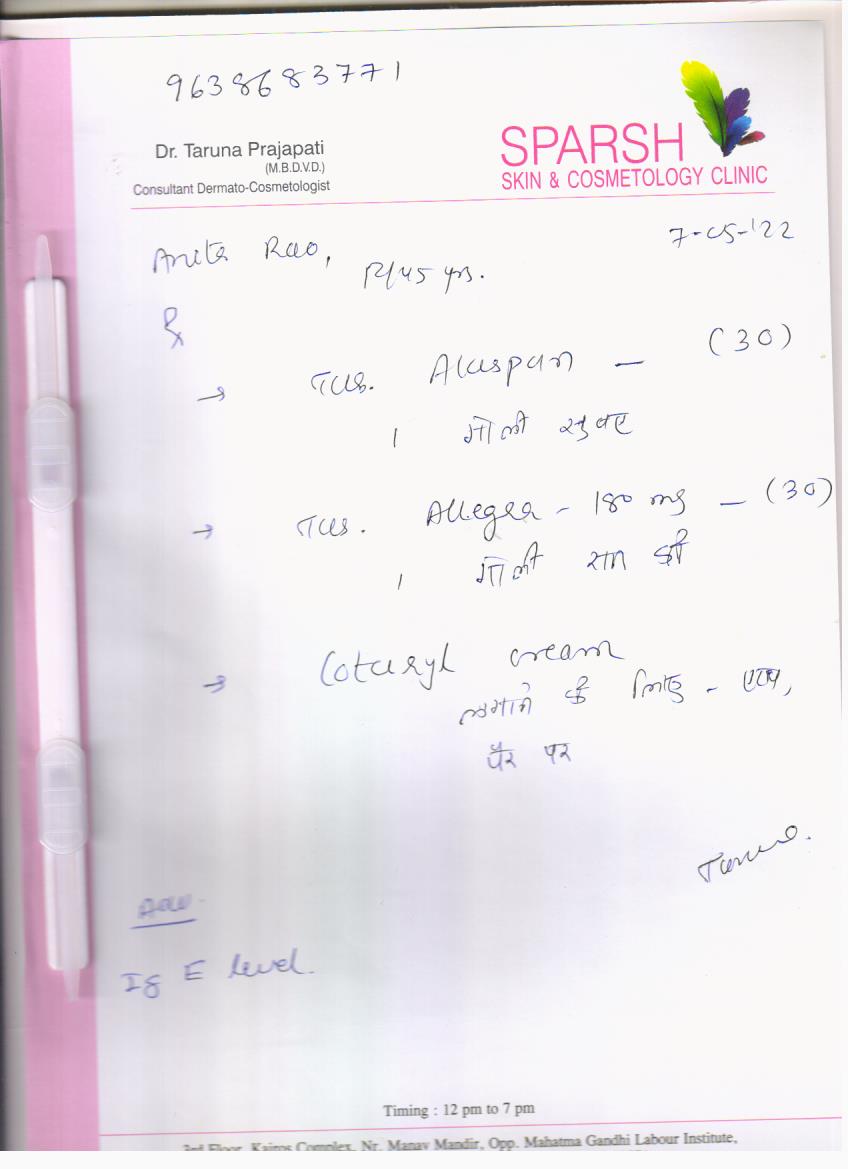 9638683771
Dr. Taruna Prajapati
(M.B.D.V.D.)
Consultant Dermato-Cosmetologist
SPARSH
SKIN & COSMETOLOGY CLINIC
7-05-'22
Anita Rao,
F/45 yrs.
Rx
→ Tab. Alaspan — (30)
1 गोली सुबह
→ Tab. Allegra - 180 mg — (30)
1 गोली रात को
→ Cotaryl cream
लगाने के लिए - हाथ,
पैर पर
Adv.
Ig E level.
Timing : 12 pm to 7 pm
3rd Floor, Kairos Complex, Nr. Manav Mandir, Opp. Mahatma Gandhi Labour Institute,